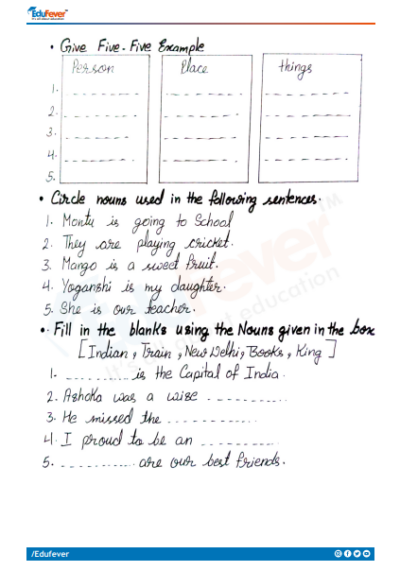 EduFever
• Give Five-Five Example
Person Place things
1. _ _ _ _ _ _ _ _ _ _ _ _ _ _ _ _ _ _
2. _ _ _ _ _ _ _ _ _ _ _ _ _ _ _ _ _ _
3. _ _ _ _ _ _ _ _ _ _ _ _ _ _ _ _ _ _
4. _ _ _ _ _ _ _ _ _ _ _ _ _ _ _ _ _ _
5.
• Circle nouns used in the following sentences.
1. Montu is going to School
2. They are playing cricket.
3. Mango is a sweet fruit.
4. Yoganshi is my daughter.
5. She is our teacher.
• Fill in the blanks using the Nouns given in the box
[Indian, Train, New Delhi, Books, King]
1. _ _ _ _ _ _ _ is the Capital of India.
2. Ashoka was a wise _ _ _ _ _ _ _ _
3. He missed the _ _ _ _ _ _ _ _ _
4. I proud to be an _ _ _ _ _ _ _ _
5. _ _ _ _ _ _ _ _ are our best friends.
/Edufever